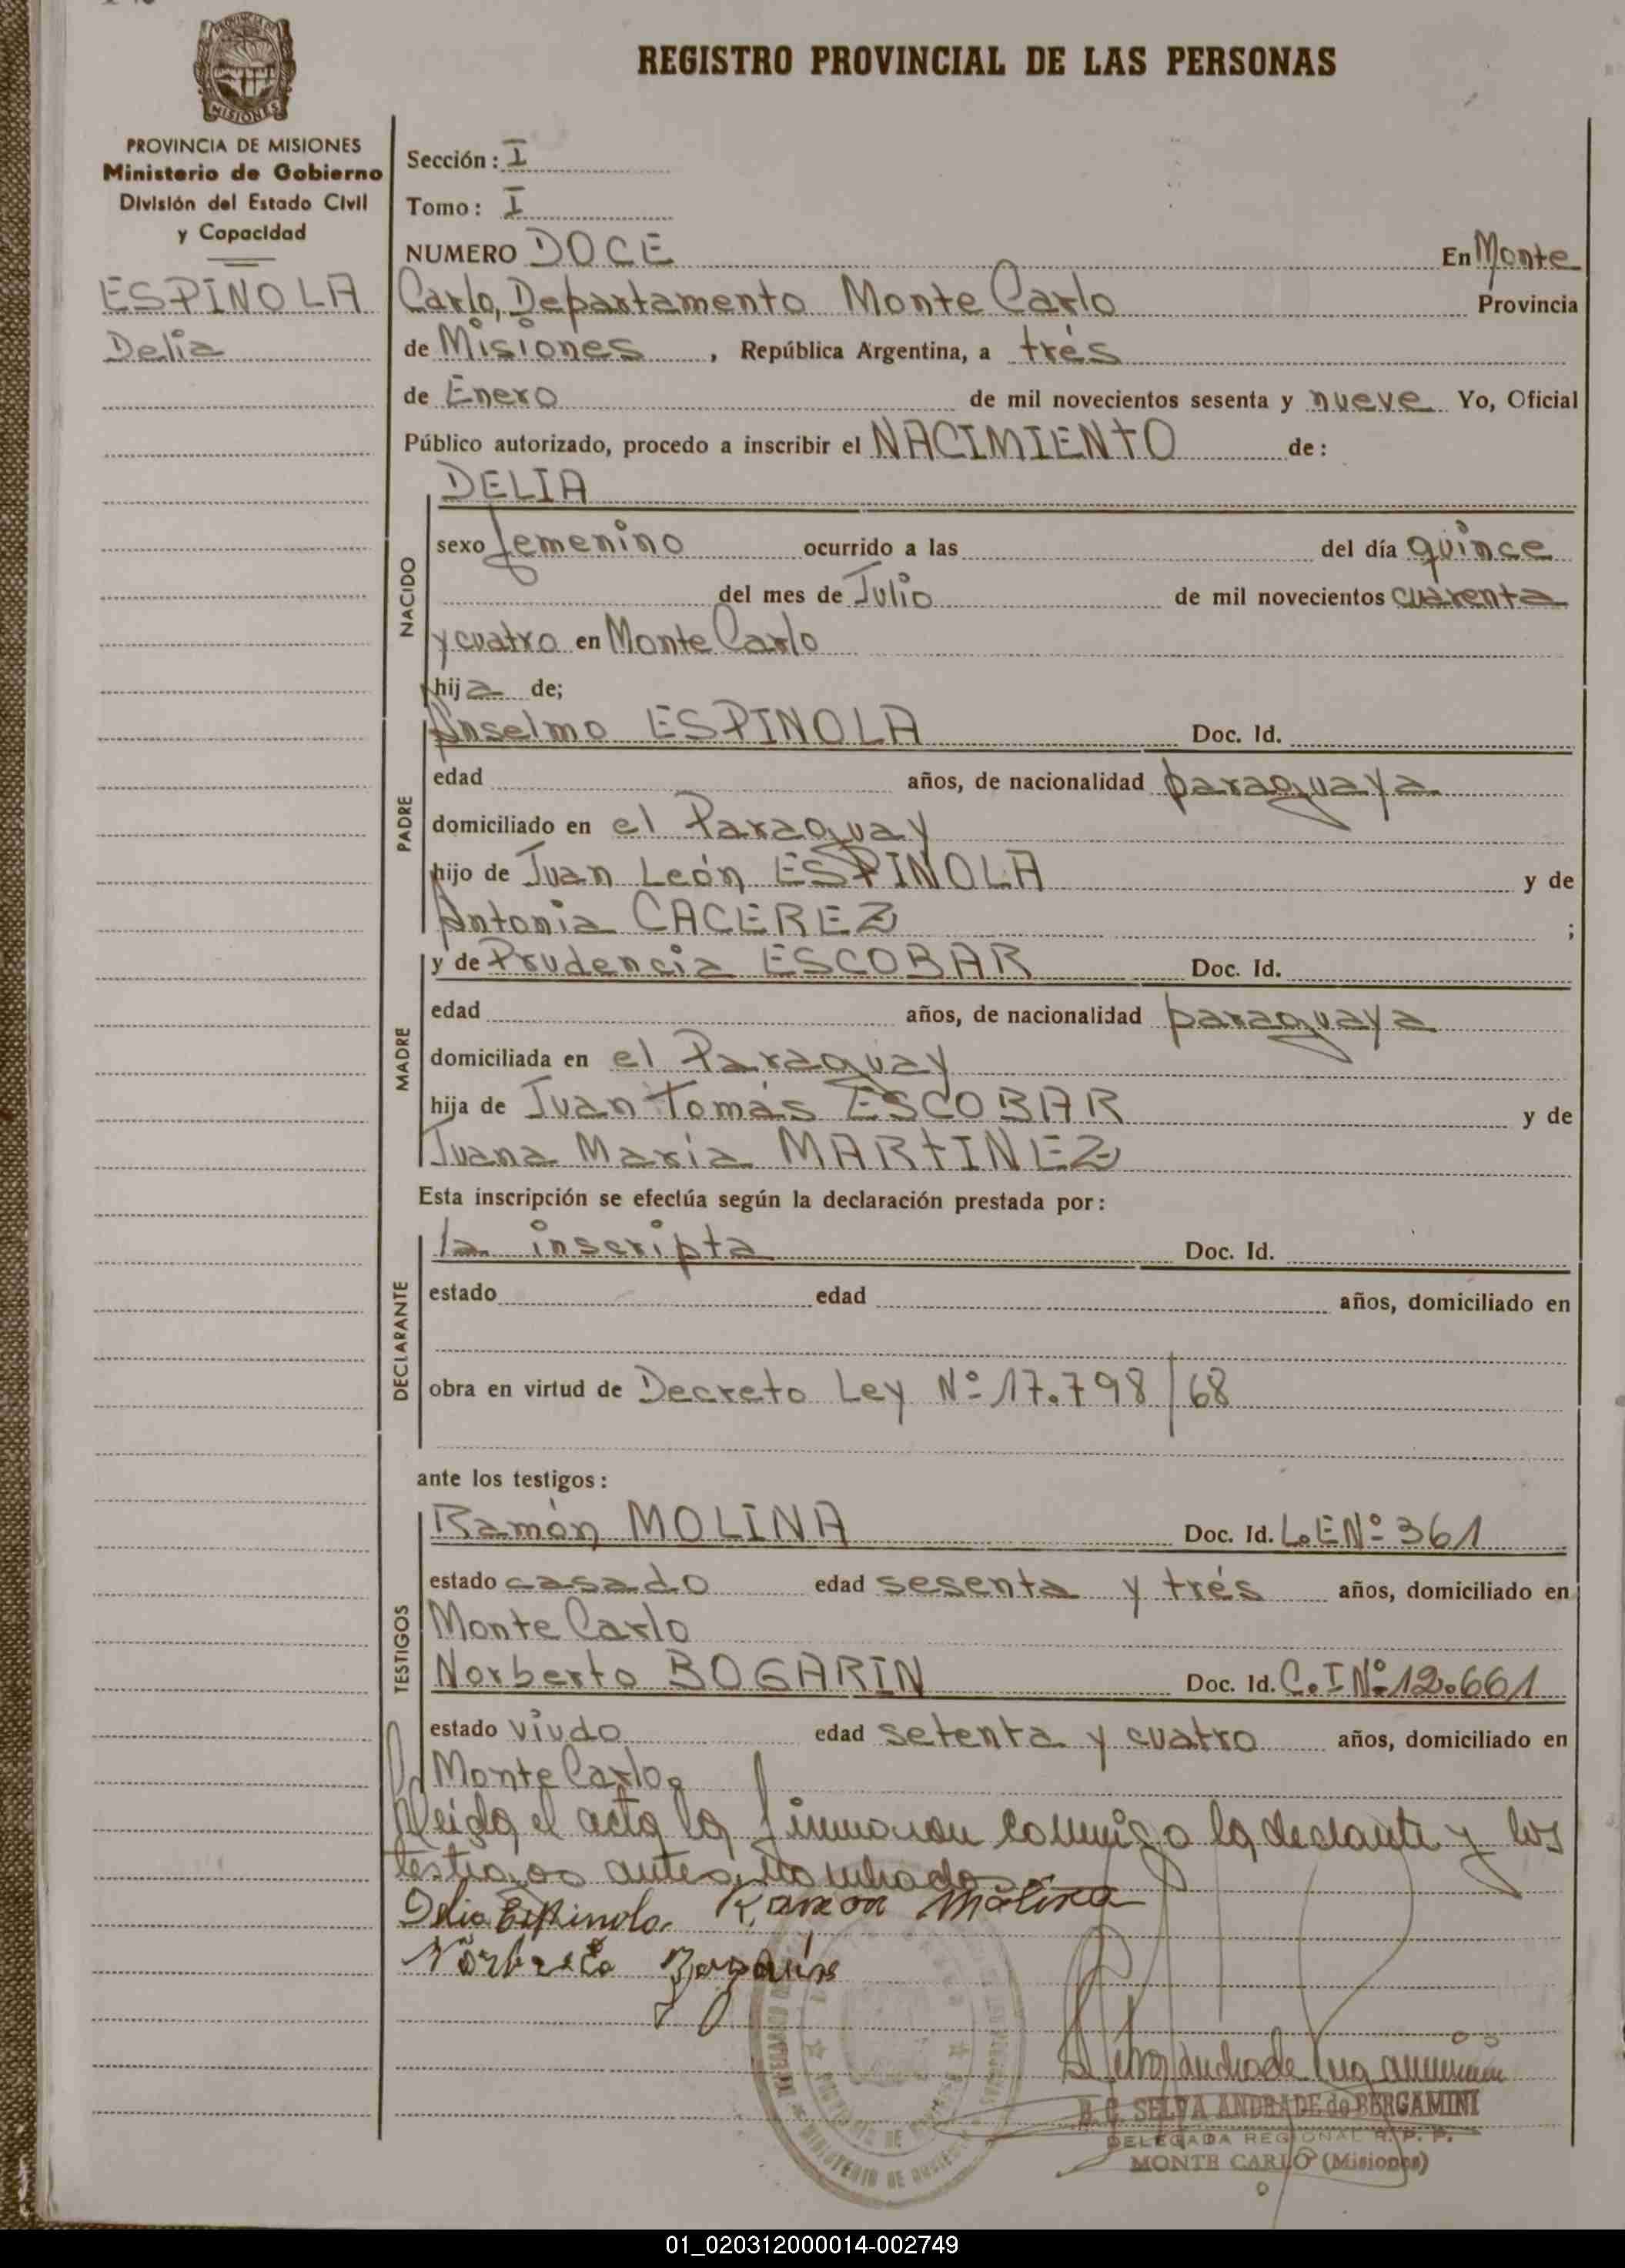 REGISTRO PROVINCIAL DE LAS PERSONAS
MISIONES
PROVINCIA DE MISIONES
Ministerio de Gobierno
División del Estado Civil
y Capacidad
ESPINOLA
Delia
Sección: I
Tomo: I
NUMERO DOCE En Monte
Carlo, Departamento Monte Carlo Provincia
de Misiones, República Argentina, a trés
de Enero de mil novecientos sesenta y nueve Yo, Oficial
Público autorizado, procedo a inscribir el NACIMIENTO de:
NACIDO
DELIA
sexo femenino ocurrido a las del día quince
del mes de Julio de mil novecientos cuarenta
y cuatro en Monte Carlo
hija de;
PADRE
Anselmo ESPINOLA Doc. Id.
edad años, de nacionalidad paraguaya
domiciliado en el Paraguay
hijo de Juan León ESPINOLA y de
Antonia CACEREZ ;
MADRE
y de Prudencia ESCOBAR Doc. Id.
edad años, de nacionalidad paraguaya
domiciliada en el Paraguay
hija de Juan Tomás ESCOBAR y de
Juana María MARTINEZ
Esta inscripción se efectúa según la declaración prestada por:
DECLARANTE
la inscripta Doc. Id.
estado edad años, domiciliado en
obra en virtud de Decreto Ley Nº 17.798/68
ante los testigos:
TESTIGOS
Ramón MOLINA Doc. Id. L.E Nº 361
estado casado edad sesenta y trés años, domiciliado en
Monte Carlo
Norberto BOGARIN Doc. Id. C.I Nº 12.661
estado viudo edad setenta y cuatro años, domiciliado en
Monte Carlo.
leida el acta la firmaron conmigo la declante y los
testigos antes nombrados
Delia Espinola. Ramon Molina
Norberto Bogarin
B. C. SELVA ANDRADE de BERGAMINI
DELEGADA REGIONAL R. P. P.
MONTE CARLO (Misiones)
01_020312000014-002749